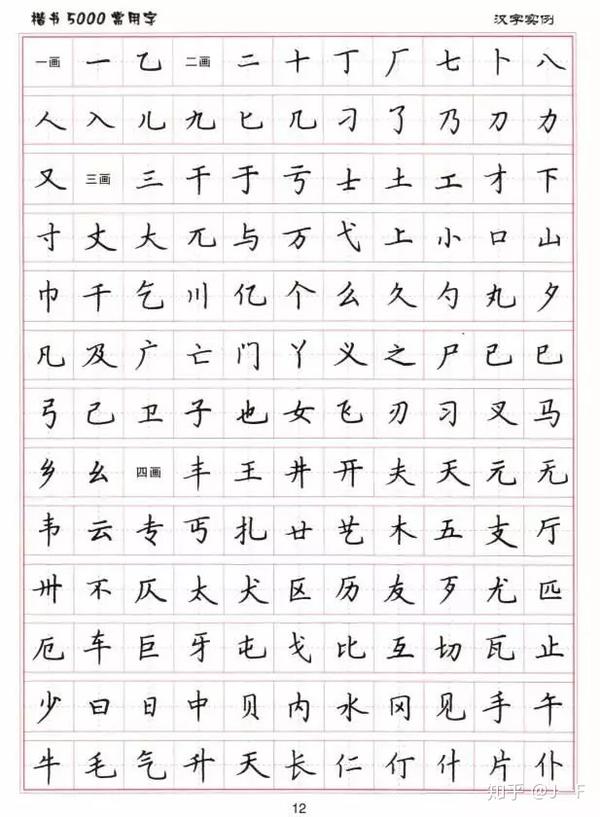 楷书5000常用字 汉字实例
一画 一 乙 二画 二 十 丁 厂 七 卜 八
人 入 儿 九 匕 几 刁 了 乃 刀 力
又 三画 三 干 于 亏 士 土 工 才 下
寸 丈 大 兀 与 万 弋 上 小 口 山
巾 千 乞 川 亿 个 么 久 勺 丸 夕
凡 及 广 亡 门 丫 义 之 尸 已 巳
弓 己 卫 子 也 女 飞 刃 习 叉 马
乡 幺 四画 丰 王 井 开 夫 天 元 无
韦 云 专 丐 扎 廿 艺 木 五 支 厅
卅 不 仄 太 犬 区 历 友 歹 尤 匹
厄 车 巨 牙 屯 戈 比 互 切 瓦 止
少 曰 日 中 贝 内 水 冈 见 手 午
牛 毛 气 升 夭 长 仁 仃 什 片 仆
12
知乎